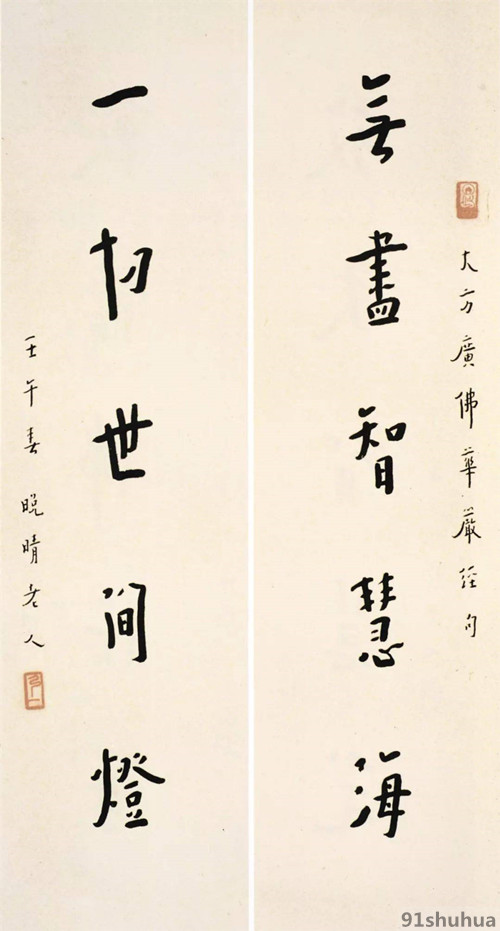 大方廣佛華嚴經句
無盡智慧海
一切世間燈
壬午春晚晴老人
91shuhua